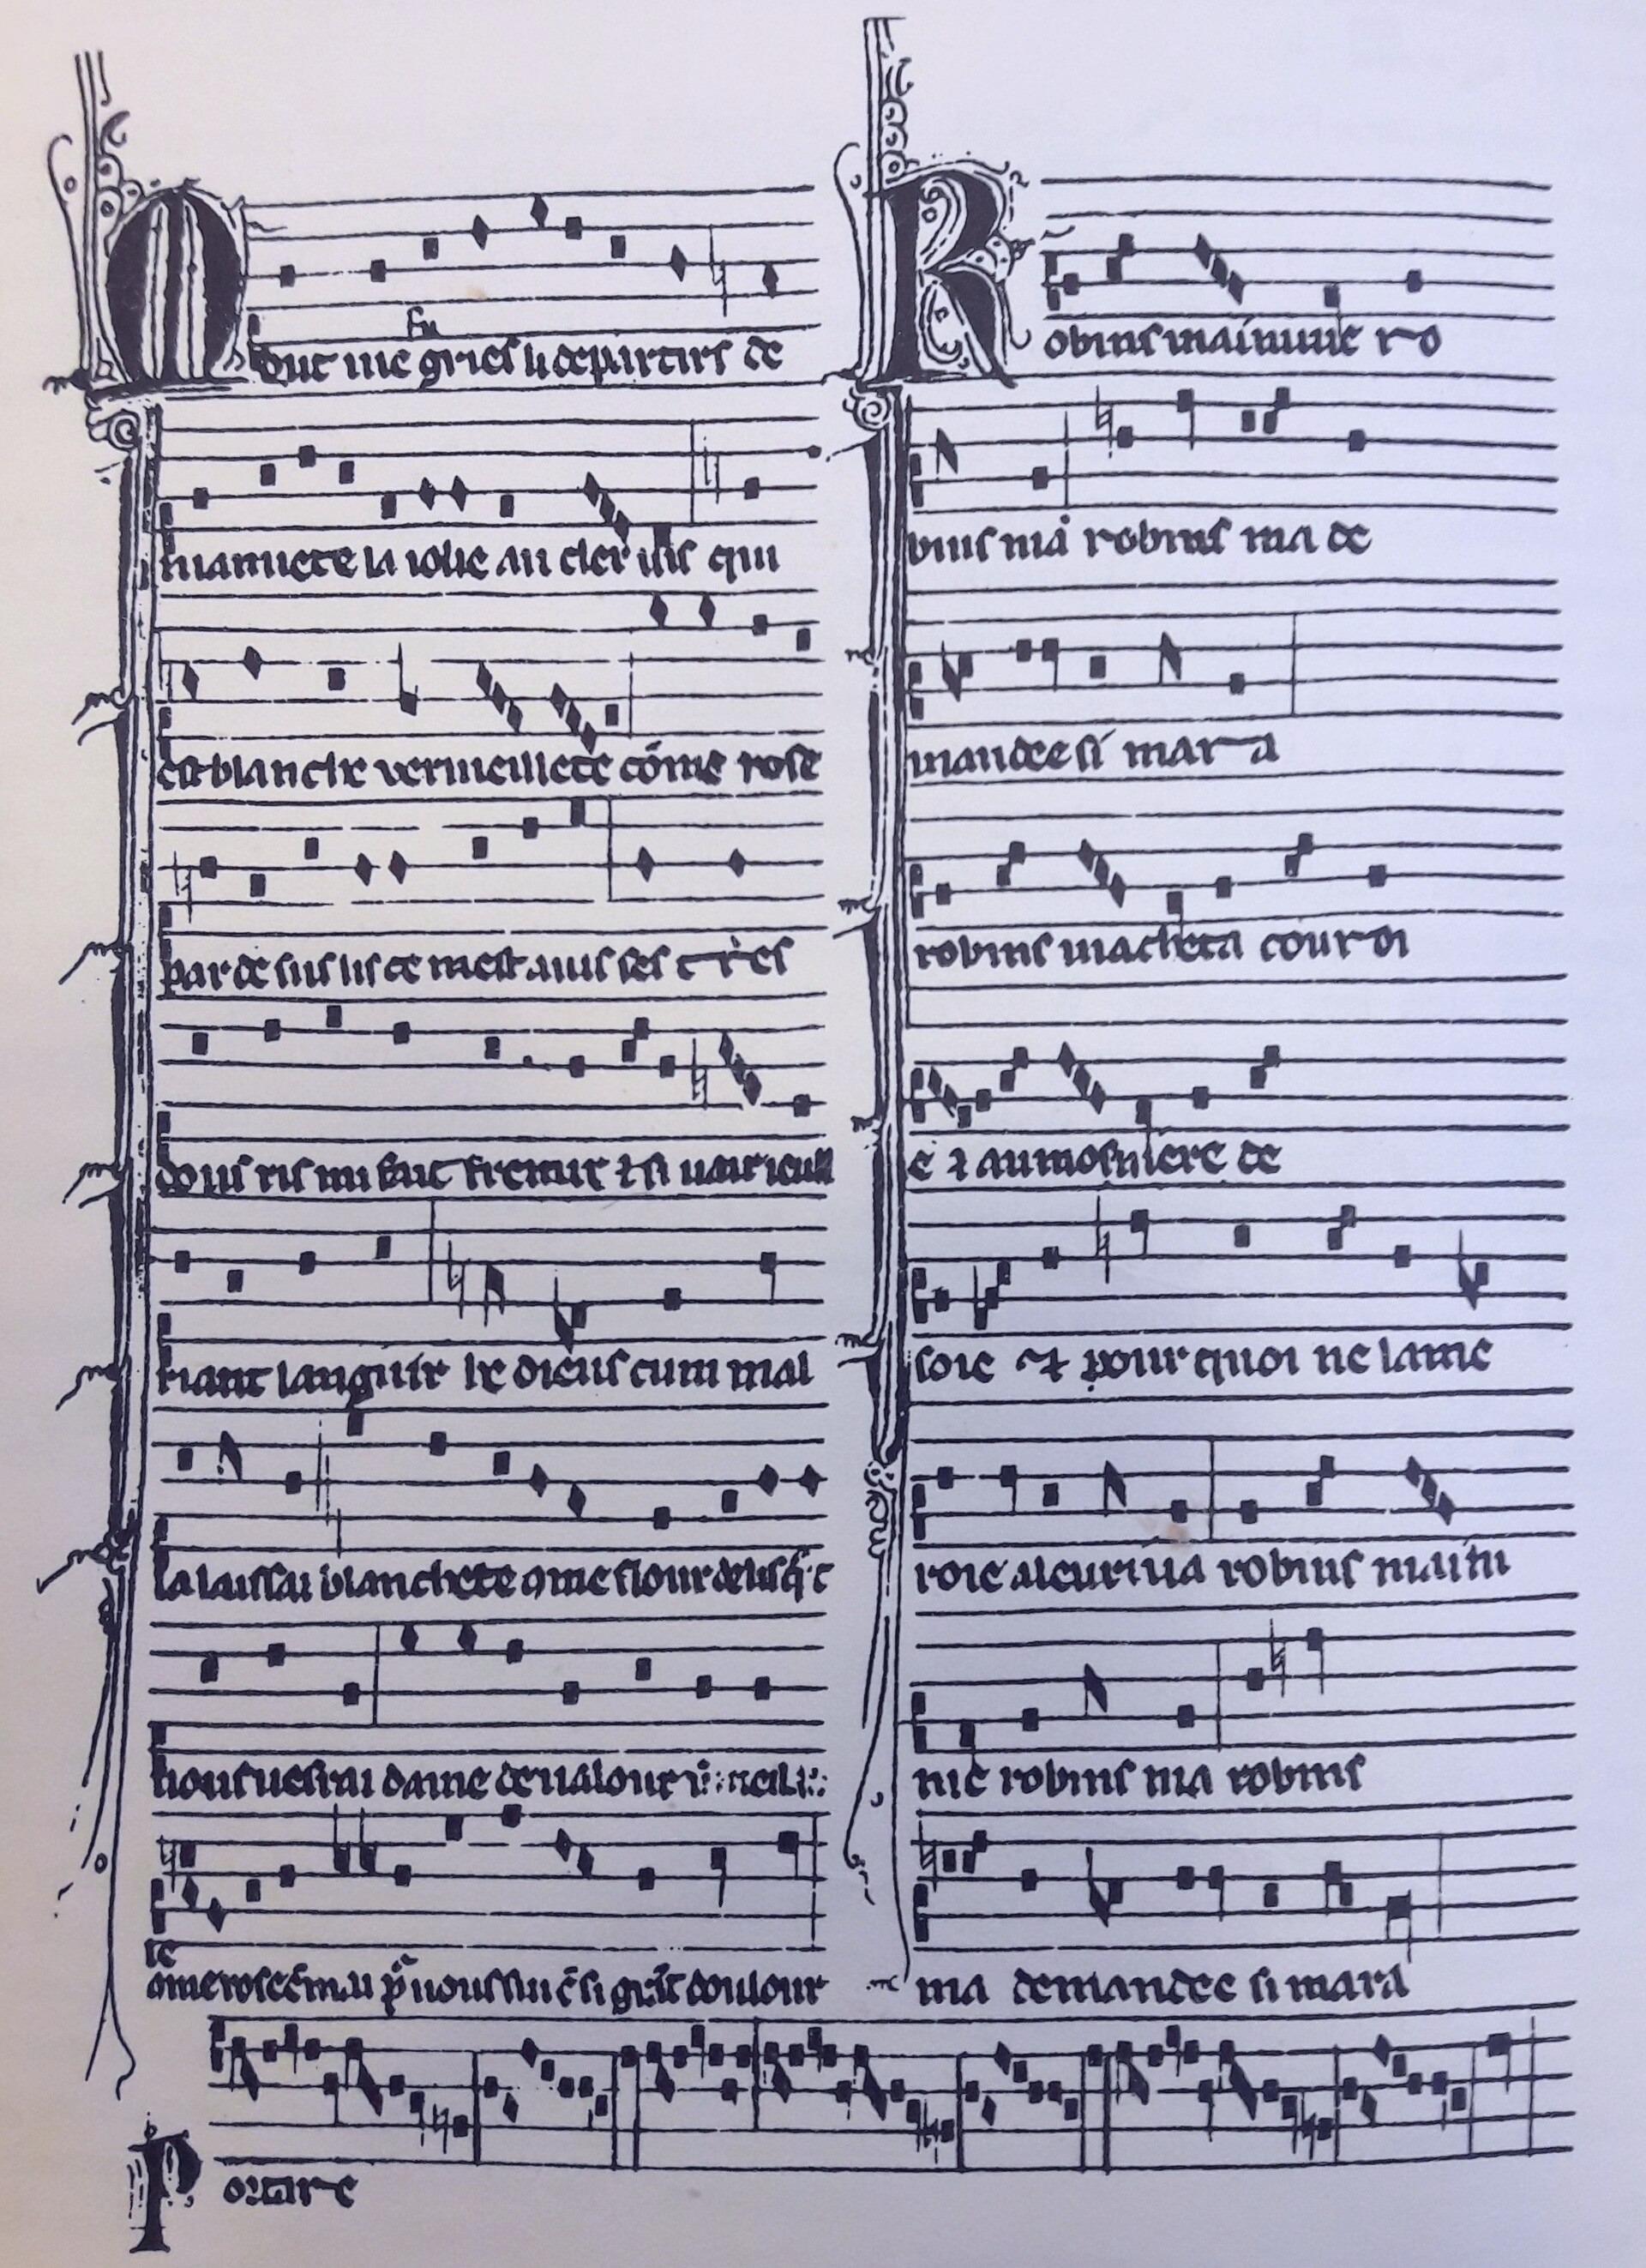 Mout me fu gries li departirs de
mamiete la jolie au cler vis qui
est blanche vermeillete cōme rose
par desus lis ce mest avis ses tres
dous ris mi fait fremir ⁊ si oeil
riant languir he dieus cum mal
la laissai blanchete cōme flour de lis
vous verrai dame de valour
vermeillete
cōme rose en mai pour vous sui en si grant doulour
Robins maimme ro
bins ma robins ma de
mandee si mara
robins macheta couroi
e ⁊ aumosniere de
soie ⁊ pour quoi ne lame
roie aleuriva robins maim
me robins ma robins
ma demandee si mara
Portare